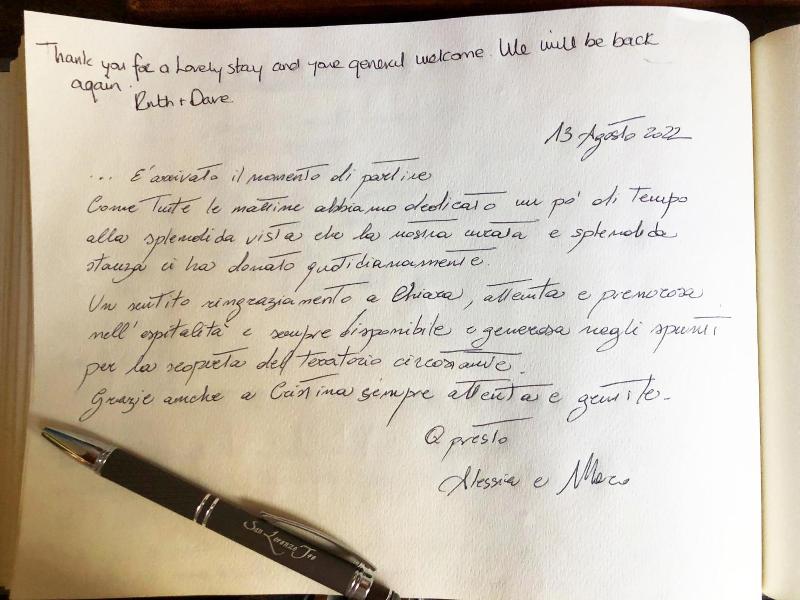 Thank you for a Lovely stay and your general welcome. We will be back
again.
Ruth + Dave.
13 Agosto 2022
... E' arrivato il momento di partire
Come tutte le mattine abbiamo dedicato un pò di tempo
alla splendida vista che la nostra curata e splendida
stanza ci ha donato quotidianamente.
Un sentito ringraziamento a Chiara, attenta e premurosa
nell'ospitalità e sempre disponibile e generosa negli spunti
per la scoperta del territorio circostante.
Grazie anche a Cristina sempre attenta e gentile.
A presto
Alessia e Marco
San Lorenzo Tre